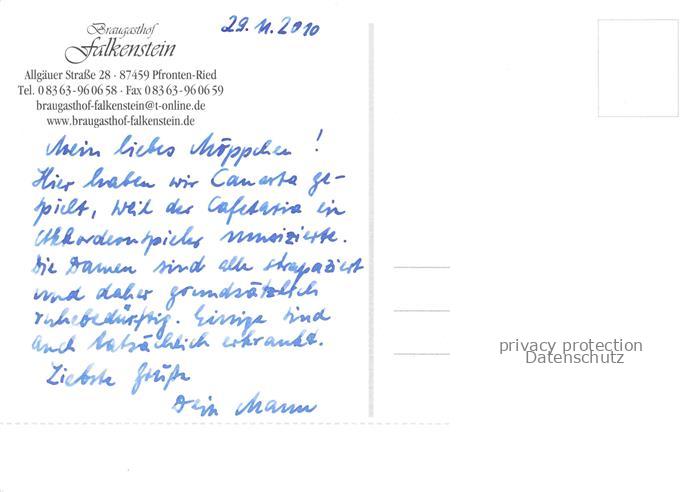 Braugasthof
Falkenstein
Allgäuer Straße 28 · 87459 Pfronten-Ried
Tel. 0 83 63 - 96 06 58 · Fax 0 83 63 - 96 06 59
braugasthof-falkenstein@t-online.de
www.braugasthof-falkenstein.de
29.11.2010
Mein liebes Möppchen !
Hier haben wir Canasta ge-
spielt, weil der Cafetaria ein
Akkordeonspieler musizierte.
Die Damen sind alle strapaziert
und daher grundsätzlich
ruhebedürftig. Einige sind
auch tatsächlich erkrankt.
Liebste Grüße
Dein Mann
privacy protection
Datenschutz